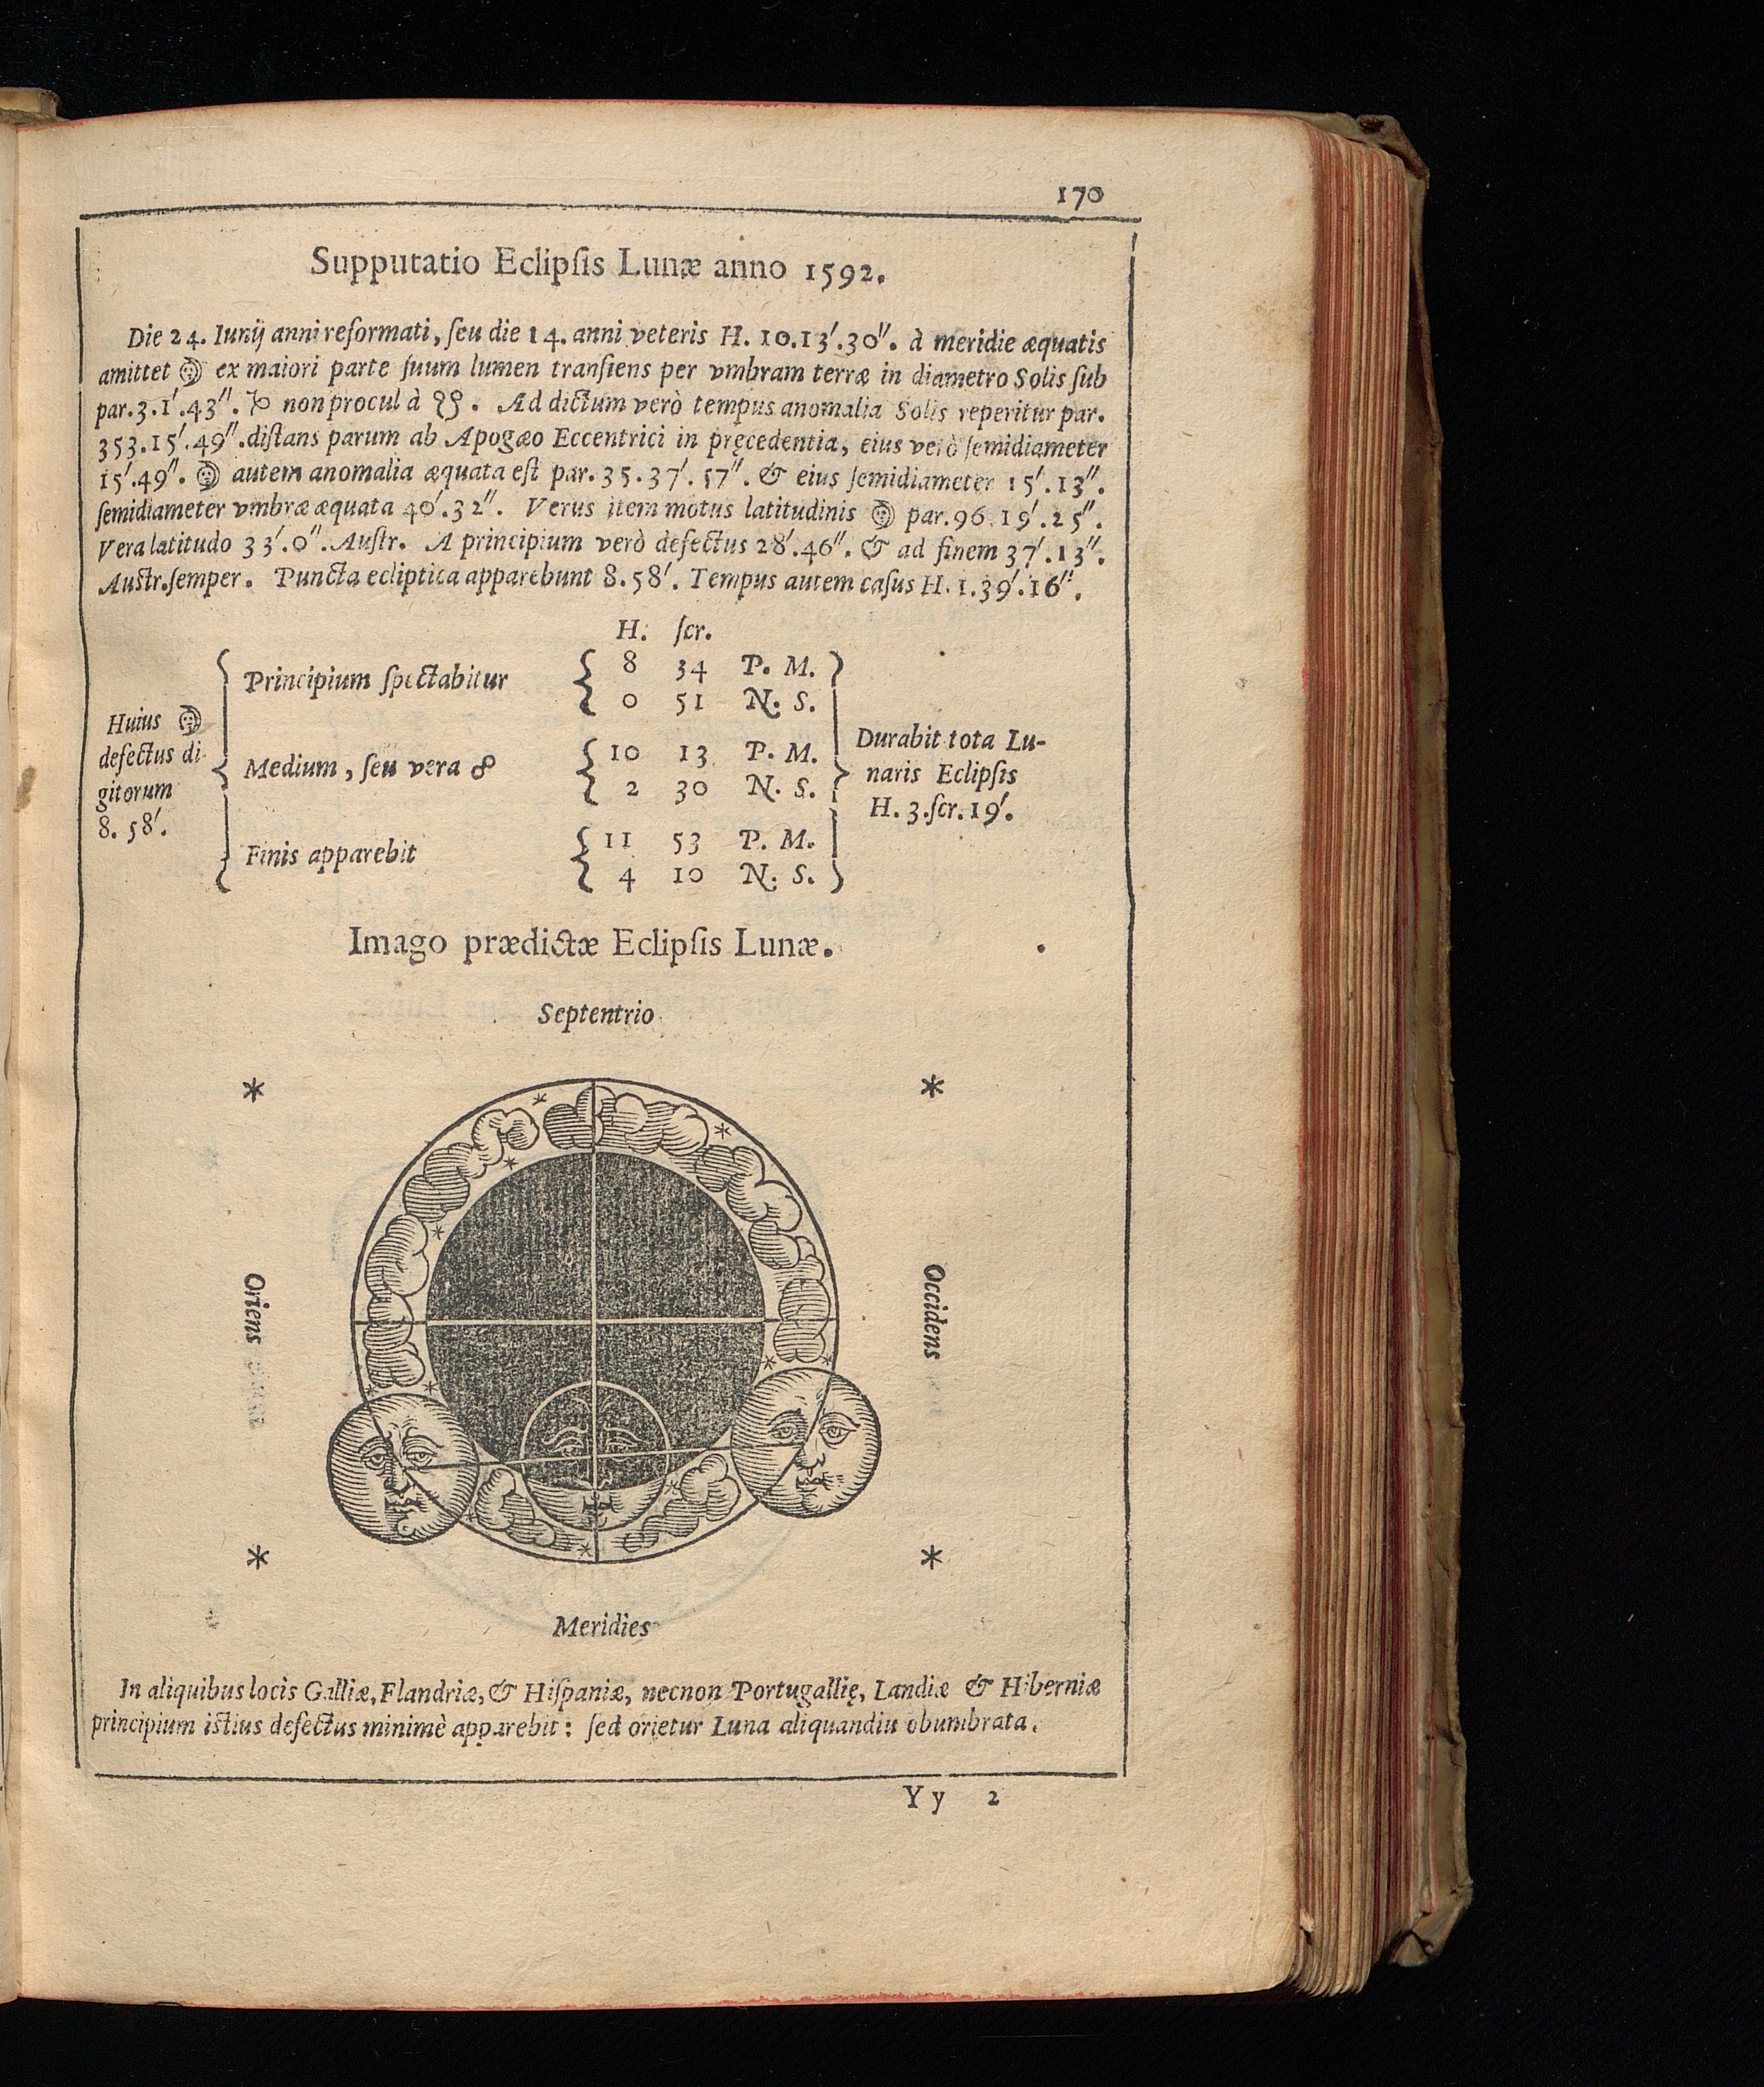 170
Supputatio Eclipſis Lunæ anno 1592.
Die 24. Iunij anni reformati, ſeu die 14. anni veteris H. 10.13′.30″. à meridie æquatis
amittet ☽ ex maiori parte ſuum lumen tranſiens per vmbram terræ in diametro Solis ſub
par.3.1′.43″. ♑ non procul à ☋. Ad dictum verò tempus anomalia Solis reperitur par.
353.15′.49″. diſtans parum ab Apogæo Eccentrici in pręcedentia, eius verò ſemidiameter
15′.49″. ☽ autem anomalia æquata eſt par.35.37′.57″. & eius ſemidiameter 15′.13″.
ſemidiameter vmbræ æquata 40′.32″. Verus item motus latitudinis ☽ par.96.19′.25″.
Vera latitudo 33′.0″. Auſtr. A principium verò defectus 28′.46″. & ad finem 37′.13″.
Auſtr. ſemper. Puncta ecliptica apparebunt 8.58′. Tempus autem caſus H.1.39′.16″.
H. ſcr.
Principium ſpectabitur { 8 34 P. M.
{ 0 51 N. S.
Huius ☽
defectus di-
gitorum
8. 58′.
Medium, ſeu vera ☍ { 10 13 P. M.
{ 2 30 N. S.
Durabit tota Lu-
naris Eclipſis
H. 3. ſcr. 19′.
Finis apparebit { 11 53 P. M.
{ 4 10 N. S.
Imago prædictæ Eclipſis Lunæ.
Septentrio
Oriens
Occidens
Meridies
In aliquibus locis Galliæ, Flandriæ, & Hiſpaniæ, necnon Portugallię, Landiæ & Hiberniæ
principium iſtius defectus minimè apparebit: ſed orietur Luna aliquandiu obumbrata.
Y y 2